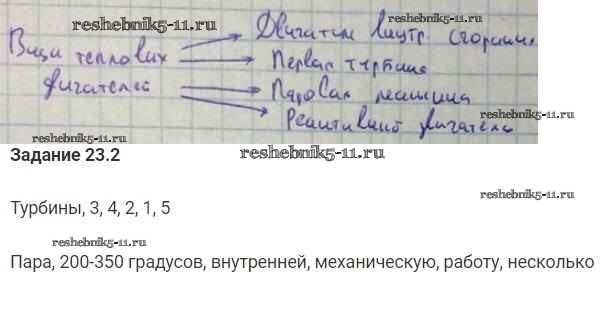 reshebnik5-11.ru
reshebnik5-11.ru
Двигатели внутр. сгорания
Виды тепловых
двигателей
Первая турбина
Паровая машина
Реактивный двигатель
reshebnik5-11.ru
reshebnik5-11.ru
reshebnik5-11.ru
Задание 23.2
reshebnik5-11.ru
Турбины, 3, 4, 2, 1, 5
reshebnik5-11.ru
Пара, 200-350 градусов, внутренней, механическую, работу, несколько